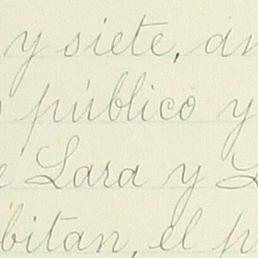 y siete, an
público y
Lara y L
bitan, el p